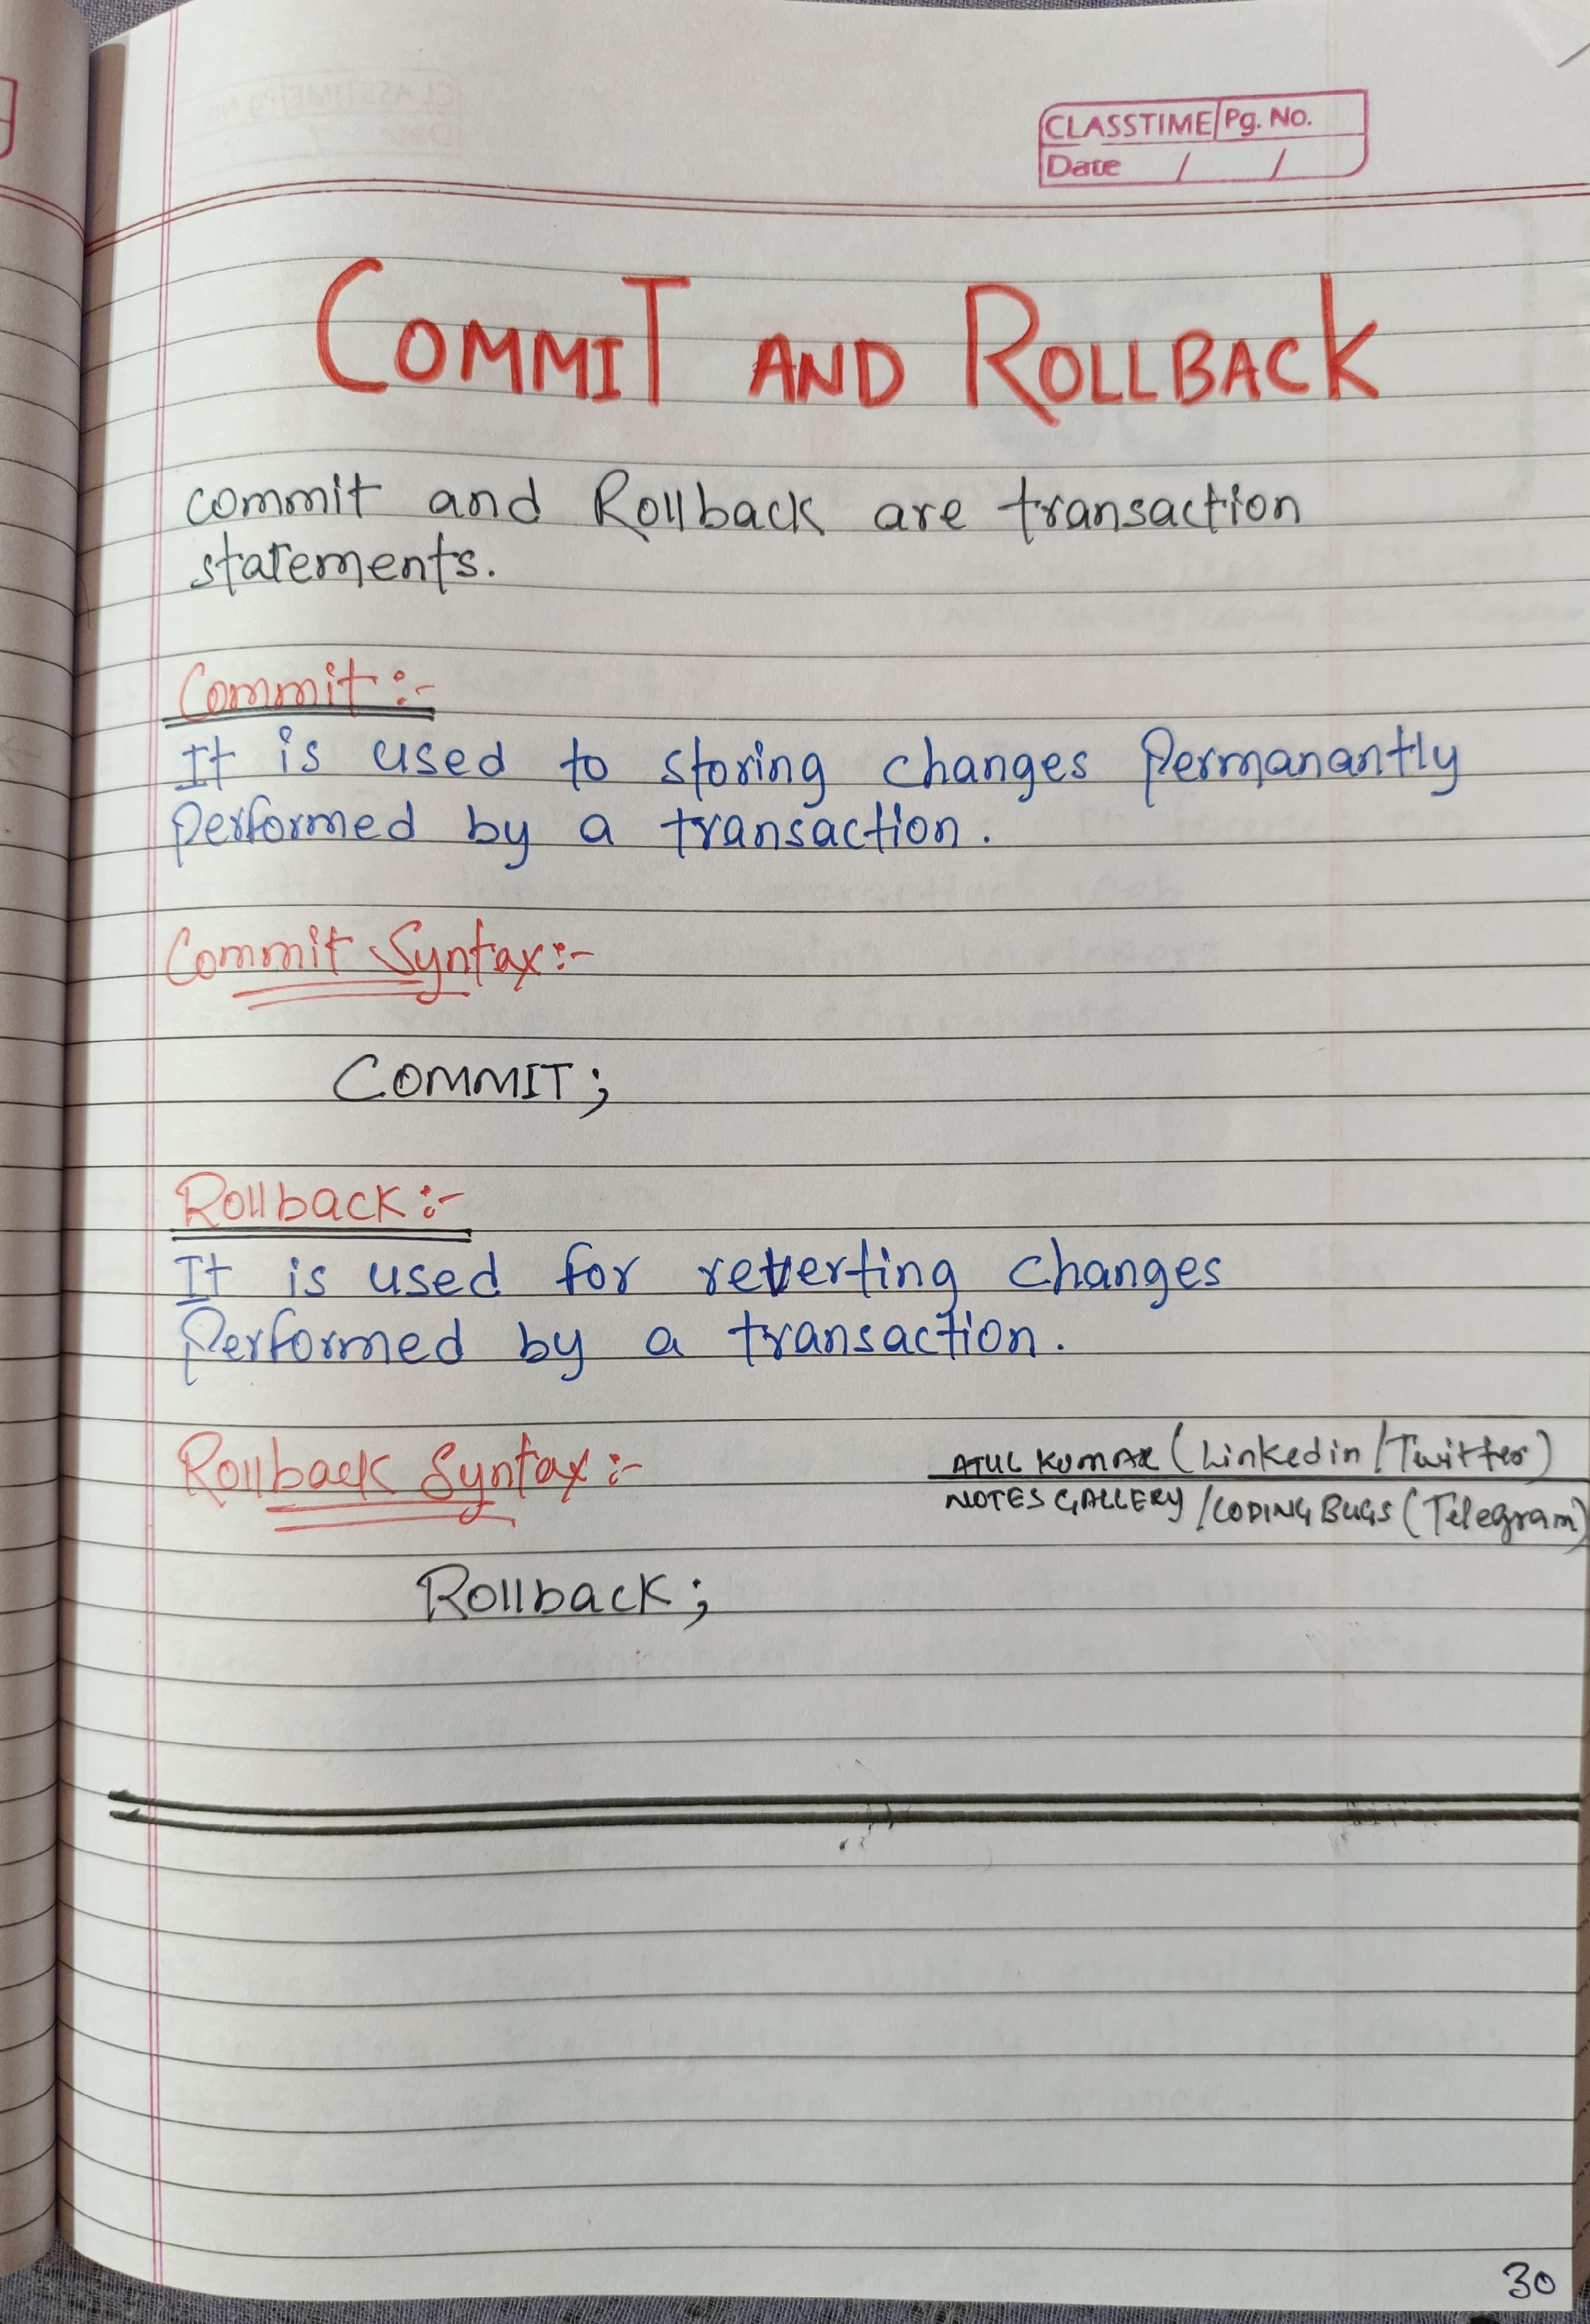 CLASSTIME Pg. No.
Date / /
COMMIT AND ROLLBACK
commit and Rollback are transaction
statements.
Commit :-
It is used to storing changes Permanantly
Performed by a transaction.
Commit Syntax:-
COMMIT;
Rollback :-
It is used for reverting changes
Performed by a transaction.
Rollback Syntax :-
ATUL KUMAR (Linkedin/Twitter)
NOTES GALLERY /CODING BUGS (Telegram)
Rollback;
30